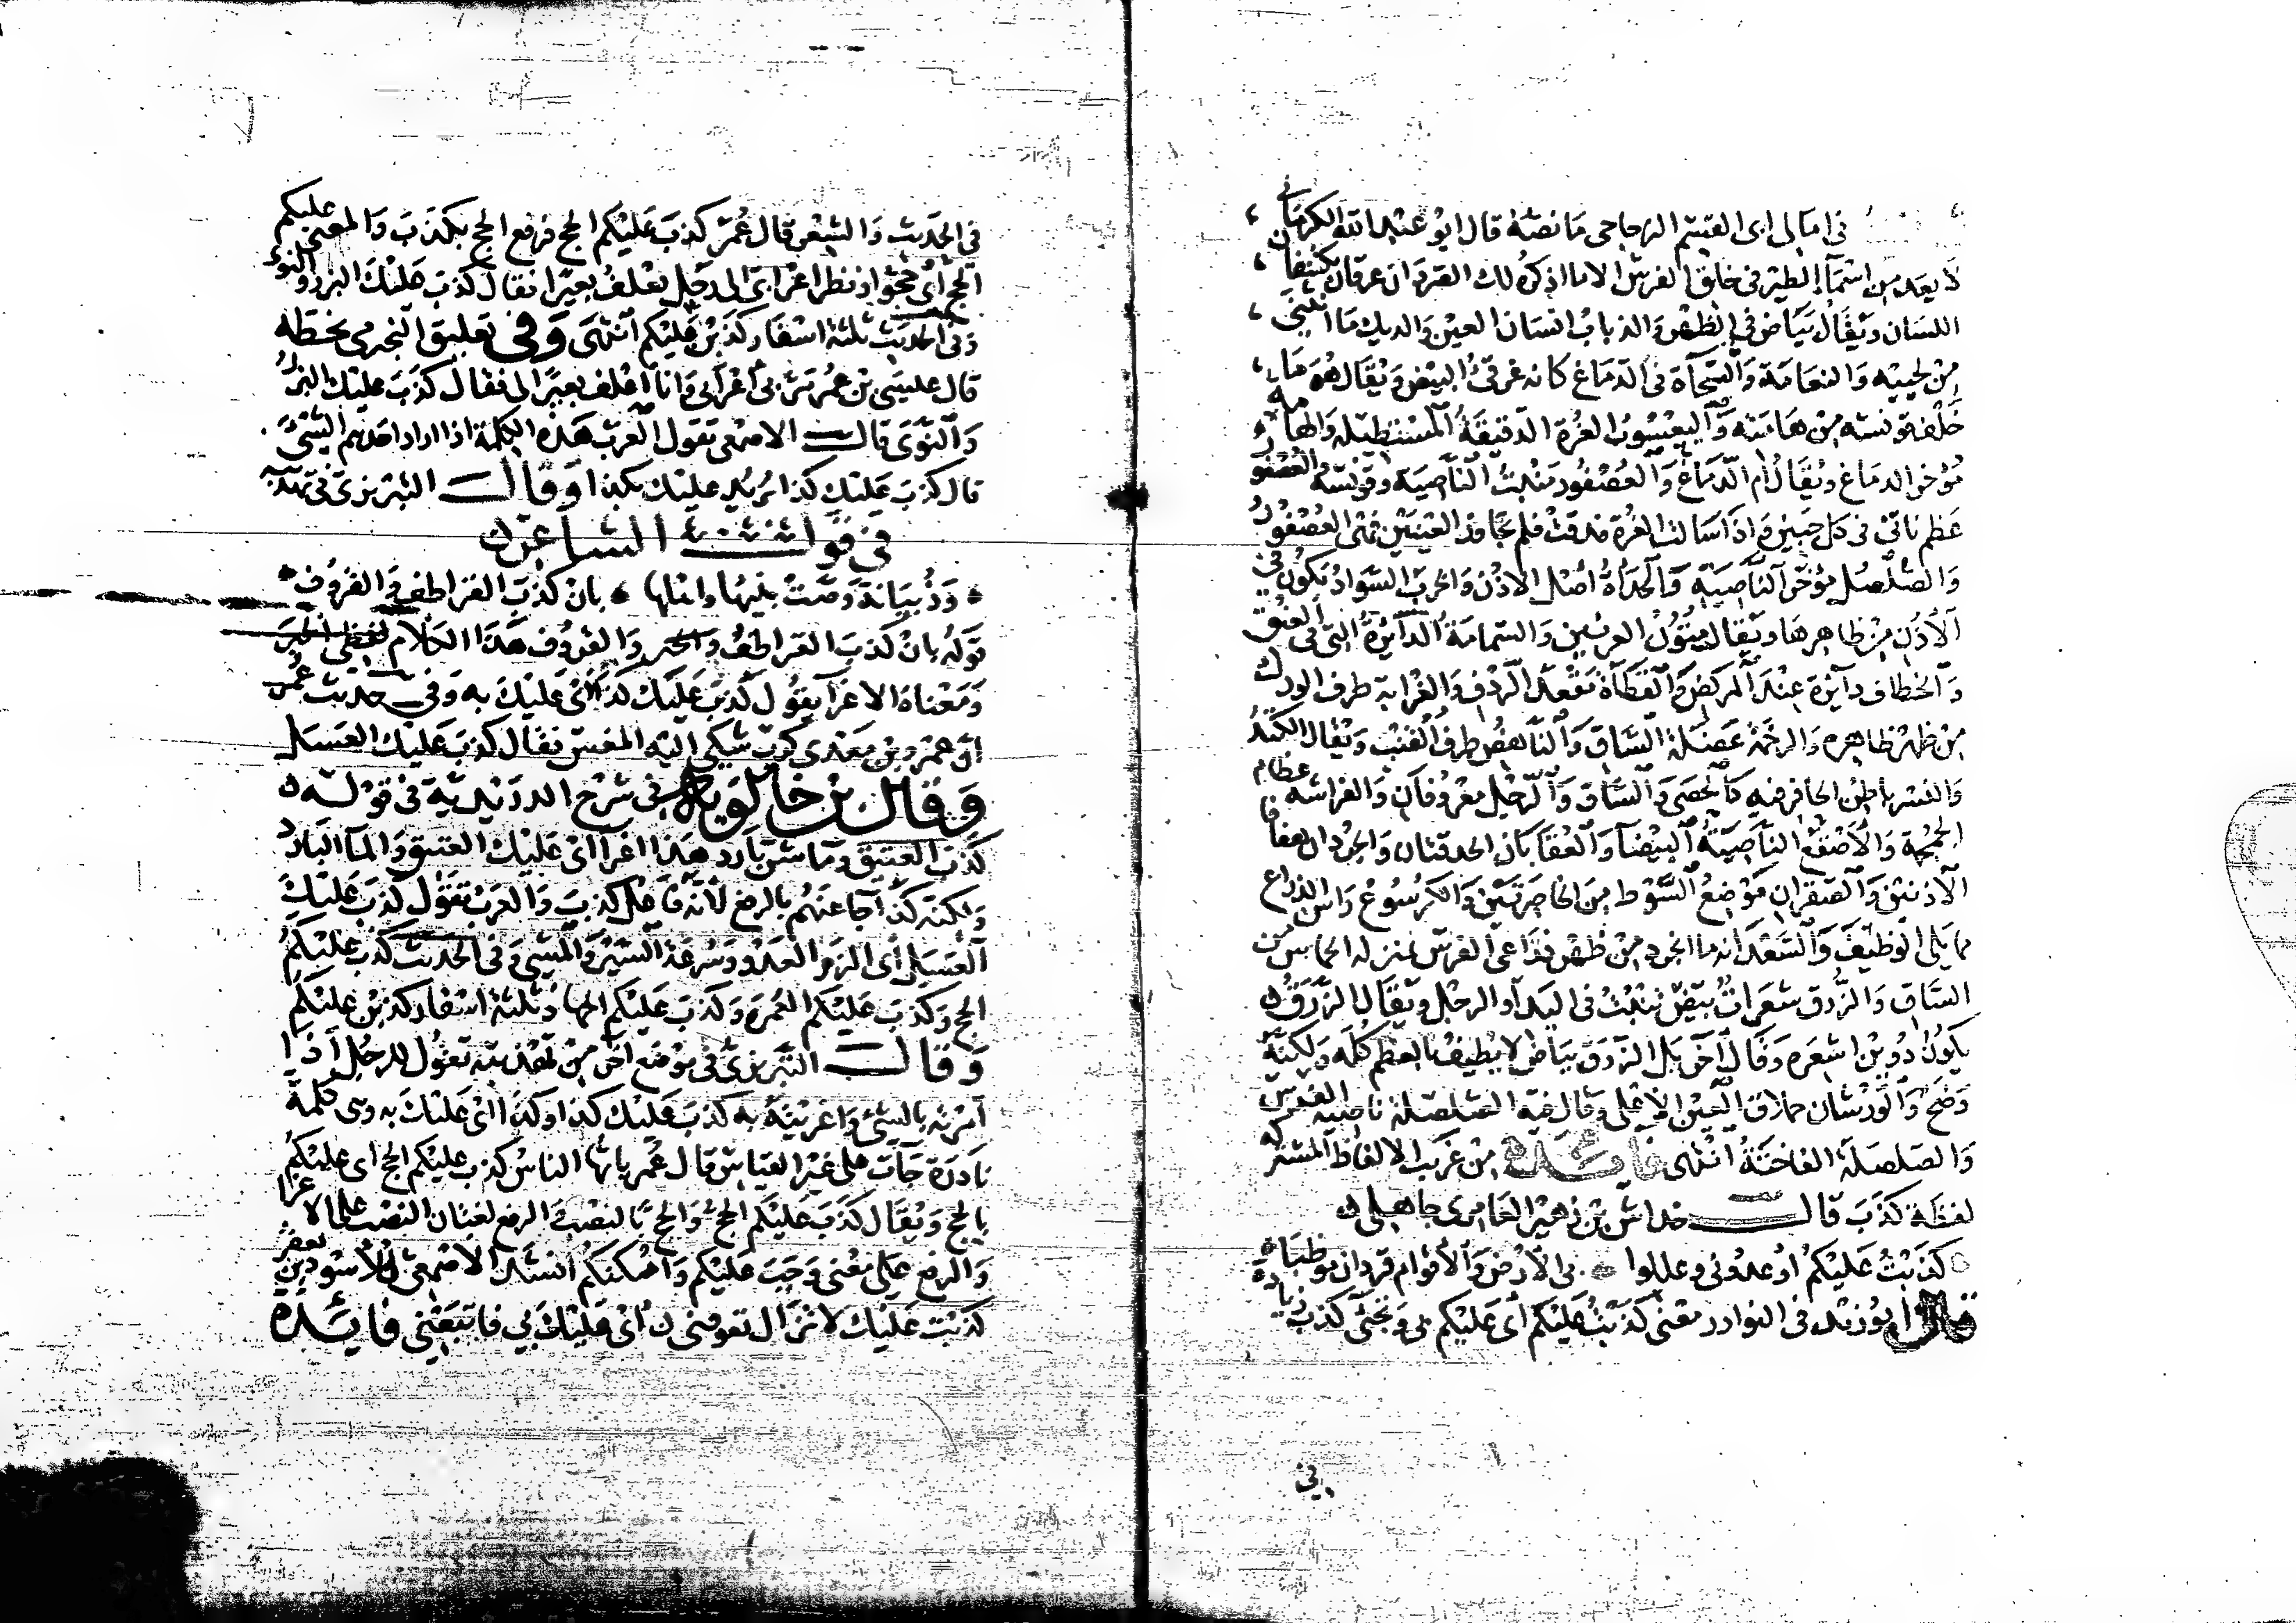 في امالي ابي القسم الزجاجي ما نصه قال ابو عبد الله الكرماني
لا يعد من اسماء الطير في خلق الفرس الا ما اذكره لك الصردان عرقان يكتنفان
اللسان ويقال بياض في الظهر والذباب انسان العين والديك ما انثنى
من لحييه والنعامة والسحاة في الدماغ كانه غرقئ البيض ويقال هو ما
خلف قونسه من هامته واليعسوب الغرة الدقيقة المستطيلة والهامة
مؤخر الدماغ ويقال ام الدماغ والعصفور منبت الناصية وقونسه والعصفور
عظم ناتئ في كل جبين واذا سالت الغرة فدقت فلم تجاوز العينين فهي العصفور
والصلصل مؤخر الناصية والحداة اصل الاذن والخرب السواد يكون في
الاذن من ظاهرها ويقال متون العرنين والسمامة الدائرة التي في العنق
والخطاف دائرة عند المركض والقطاة مقعد الردف والغرابة طرف الورك
من ظهر ظاهره والرخمة عضلة الساق والناهض طرف القنب ويقال الكتد
والنسر باطن الحافر فيه كالحصى والساق والرجل معروفان والفراشة عظام
الجمجمة والاصقع الناصية البيضا والعقابان الحدقتان والجردان هما قفا
الاذنين والصقران موضع السوط من الخاصرتين والكرسوع راس الذراع
مما يلي الوظيف والسعدانة ما انجرد من ظهر ذراعي الفرس بمنزلة الحماس من
الساق والزرق شعرات بيض تنبت في اليد او الرجل ويقال الزرق
يكون دوين اشعره وقال اخر بل الزرق بياض لا يطيف بالعظم كله ولكنه
وضح والورشان حملاق العين الاعلى وقال فيه الصلصلة ناصية الفرس
والصلصلة الفاختة انتهى فائدة من غريب الالفاظ المشتركة
لفظة كذب قال خداش بن زهير العامري جاهلي
كذبت عليكم اوعدوني وعللوا بي الارض والاقوام قردان موظبا
قال ابو زيد في النوادر معنى كذبت عليكم اي عليكم بي وتجئ كذب زيادة
في
في الحديث والشعر قال عمر كذب عليكم الحج فرفع الحج بكذب والمعنى عليكم
الحج اي حجوا ونظر اعرابي الى رجل يعلف بعيرا فقال كذب عليك البزر والنوى
وفي الحديث ثلثة اسفار كذبن عليكم انتهى وفي تعليق النجرمي بخطه
قال عيسى بن عمر مر بي اعرابي وانا اعلف بعيرا لي فقال كذب عليك البزر
والنوى قال الاصمعي تقول العرب هذه الكلمة اذا اراد احدهم الشئ
قال كذب عليك كذا يريد عليك بكذا وقال التبريزي في تهذيبه
في قوله الشاعر
وذبيانة وصت بنيها بان كذب القراطف والقروف
قوله بان كذب القراطف والقروف هذا الكلام لفظه الخبر
ومعناه الاغرا يقول كذب عليك كذا اي عليك به وفي حديث عمر
ان عمرو بن معدي كرب شكى اليه المغس فقال كذب عليك العسل
وقال بن خالويه في شرح الدريدية في قوله
كذب العتيق وما شن بارد هذا اغرا اي عليك العتيق والما البارد
ولكنه كذا جا عنهم بالرفع لانه فاعل كذب والعرب تقول كذب عليك
العسل اي الزم العدو وسرعة السير والمشي وفي الحديث كذب عليكم
الحج وكذب عليكم العمرة وكذب عليكم الجهاد ثلثة اسفار كذبن عليكم
وقال التبريزي في موضع اخر من تهذيبه تقول للرجل اذا
امرته بالشئ واغريته به كذب عليك كذا وكذا اي عليك به وهي كلمة
نادرة جات على غير القياس قال عمر يا ايها الناس كذب عليكم الحج اي عليكم
بالحج ويقال كذب عليكم الحج والحج بالنصب والرفع لغتان النصب على الاغرا
والرفع على معنى وجب عليكم وامكنكم انشد الاصمعي للاسود بن يعفر
كذبت عليك لا تزال تقوفني اي عليك بي فاتبعني فائدة